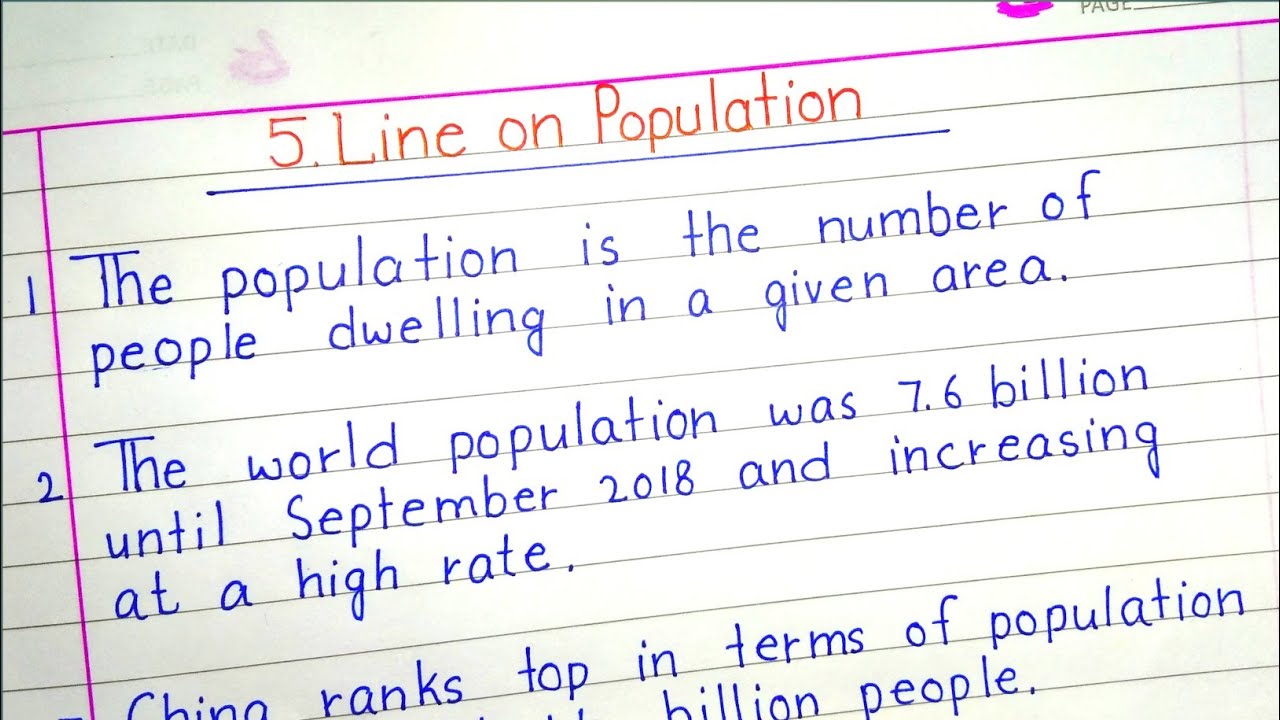 PAGE
5. Line on Population
1 The population is the number of
people dwelling in a given area.
2 The world population was 7.6 billion
until September 2018 and increasing
at a high rate.
China ranks top in terms of population
billion people.